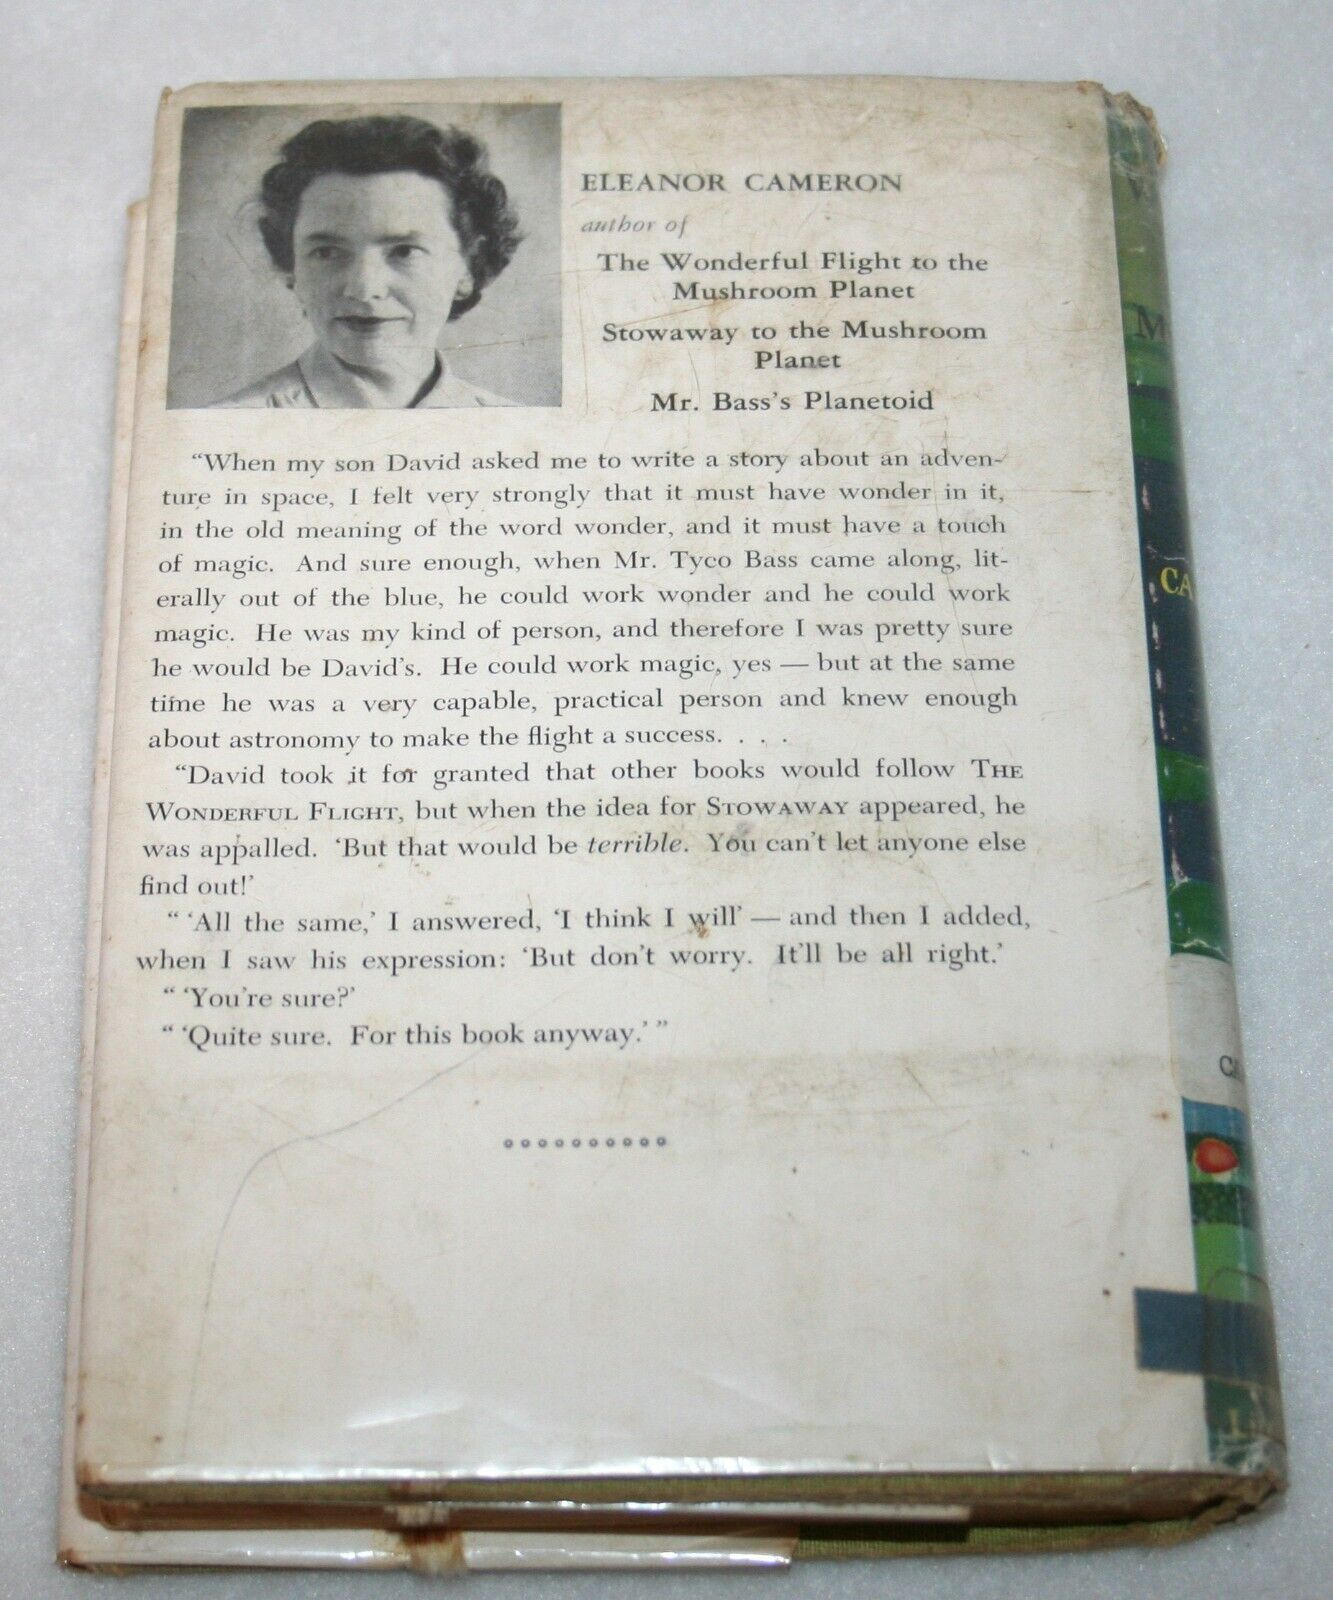 ELEANOR CAMERON
author of
The Wonderful Flight to the
Mushroom Planet
Stowaway to the Mushroom
Planet
Mr. Bass's Planetoid
“When my son David asked me to write a story about an adven-
ture in space, I felt very strongly that it must have wonder in it,
in the old meaning of the word wonder, and it must have a touch
of magic. And sure enough, when Mr. Tyco Bass came along, lit-
erally out of the blue, he could work wonder and he could work
magic. He was my kind of person, and therefore I was pretty sure
he would be David's. He could work magic, yes — but at the same
time he was a very capable, practical person and knew enough
about astronomy to make the flight a success. . . .
“David took it for granted that other books would follow THE
WONDERFUL FLIGHT, but when the idea for STOWAWAY appeared, he
was appalled. ‘But that would be terrible. You can't let anyone else
find out!’
“ ‘All the same,’ I answered, ‘I think I will’ — and then I added,
when I saw his expression: ‘But don't worry. It'll be all right.’
“ ‘You're sure?’
“ ‘Quite sure. For this book anyway.’ ”
M
CA
CA